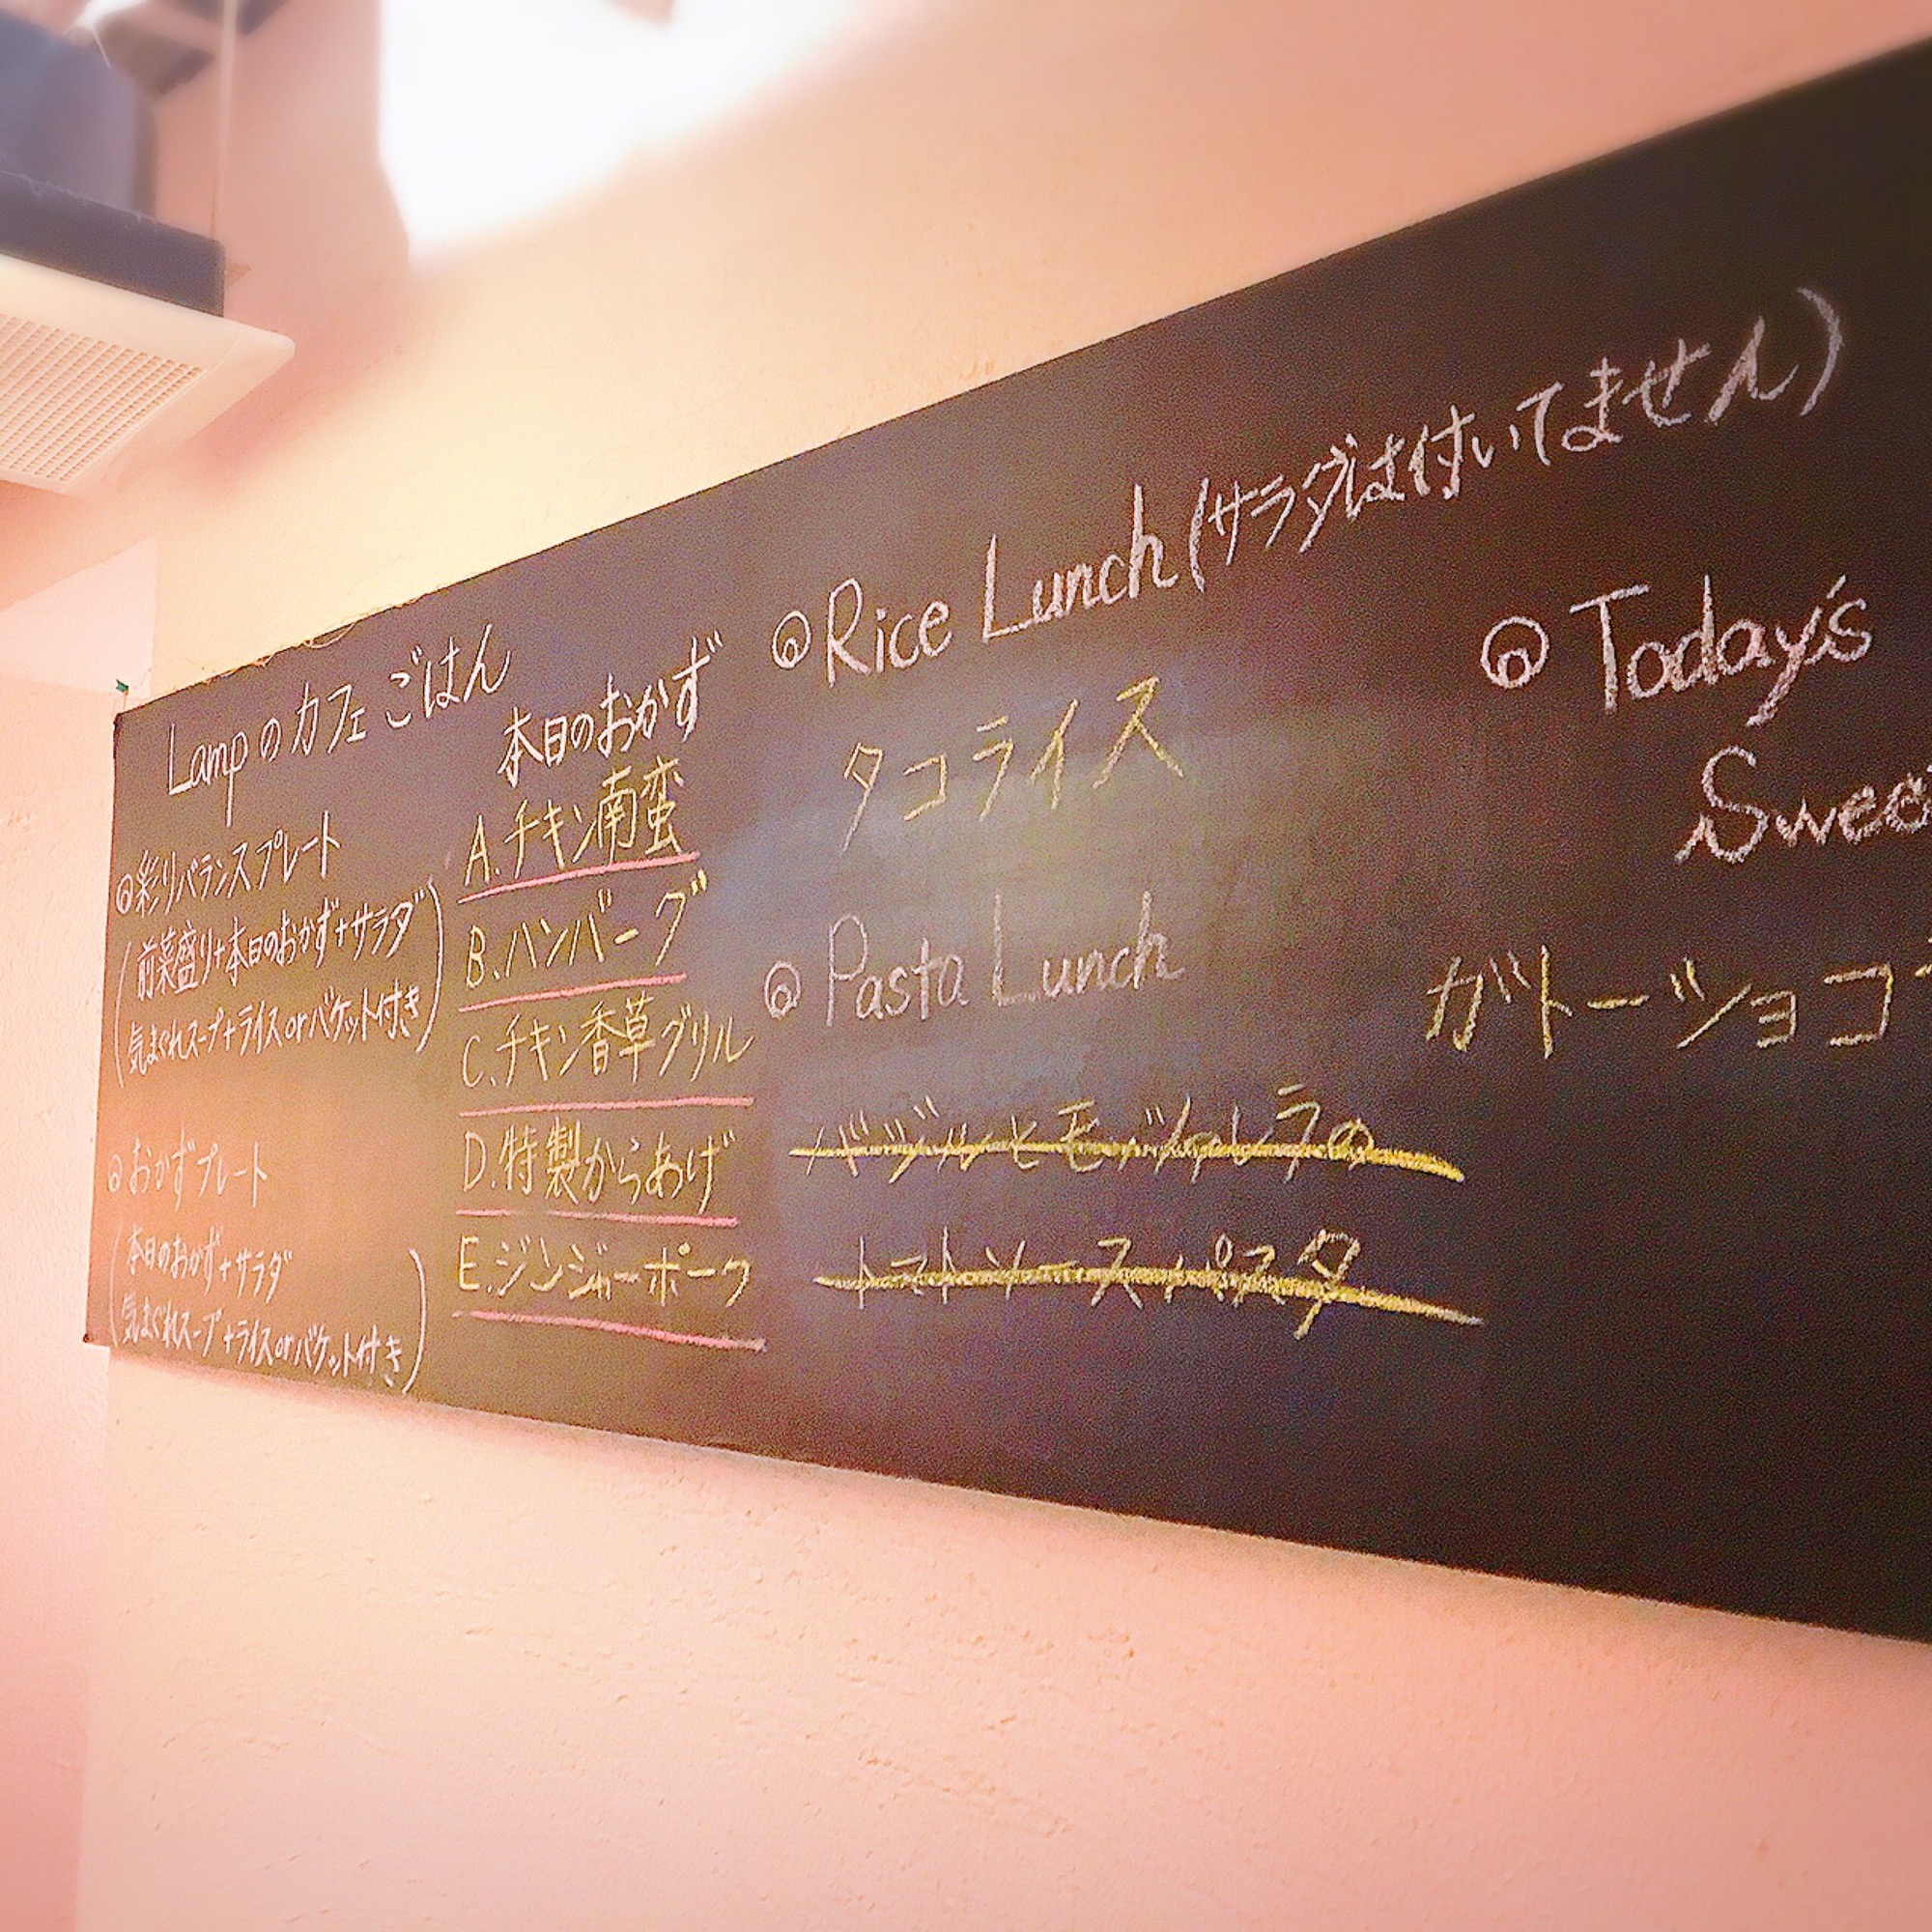 Lampのカフェごはん
◎彩りバランスプレート
(前菜盛り+本日のおかず+サラダ
気まぐれスープ+ライスorバケット付き)
◎おかずプレート
(本日のおかず+サラダ
気まぐれスープ+ライスorバケット付き)
本日のおかず
A.チキン南蛮
B.ハンバーグ
C.チキン香草グリル
D.特製からあげ
E.ジンジャーポーク
◎Rice Lunch(サラダは付いてません)
タコライス
◎Pasta Lunch
バジルとモッツァレラの
トマトソースパスタ
◎Today's
Swee
ガトーショコ